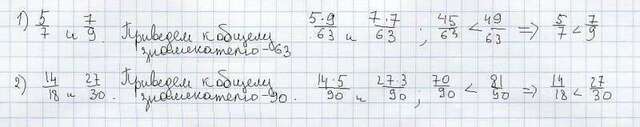 1) 5/7 и 7/9. Приведем к общему знаменателю-63 5·9/63 и 7·7/63; 45/63 < 49/63 => 5/7 < 7/9
2) 14/18 и 27/30. Приведем к общему знаменателю-90. 14·5/90 и 27·3/90; 70/90 < 81/90 => 14/18 < 27/30